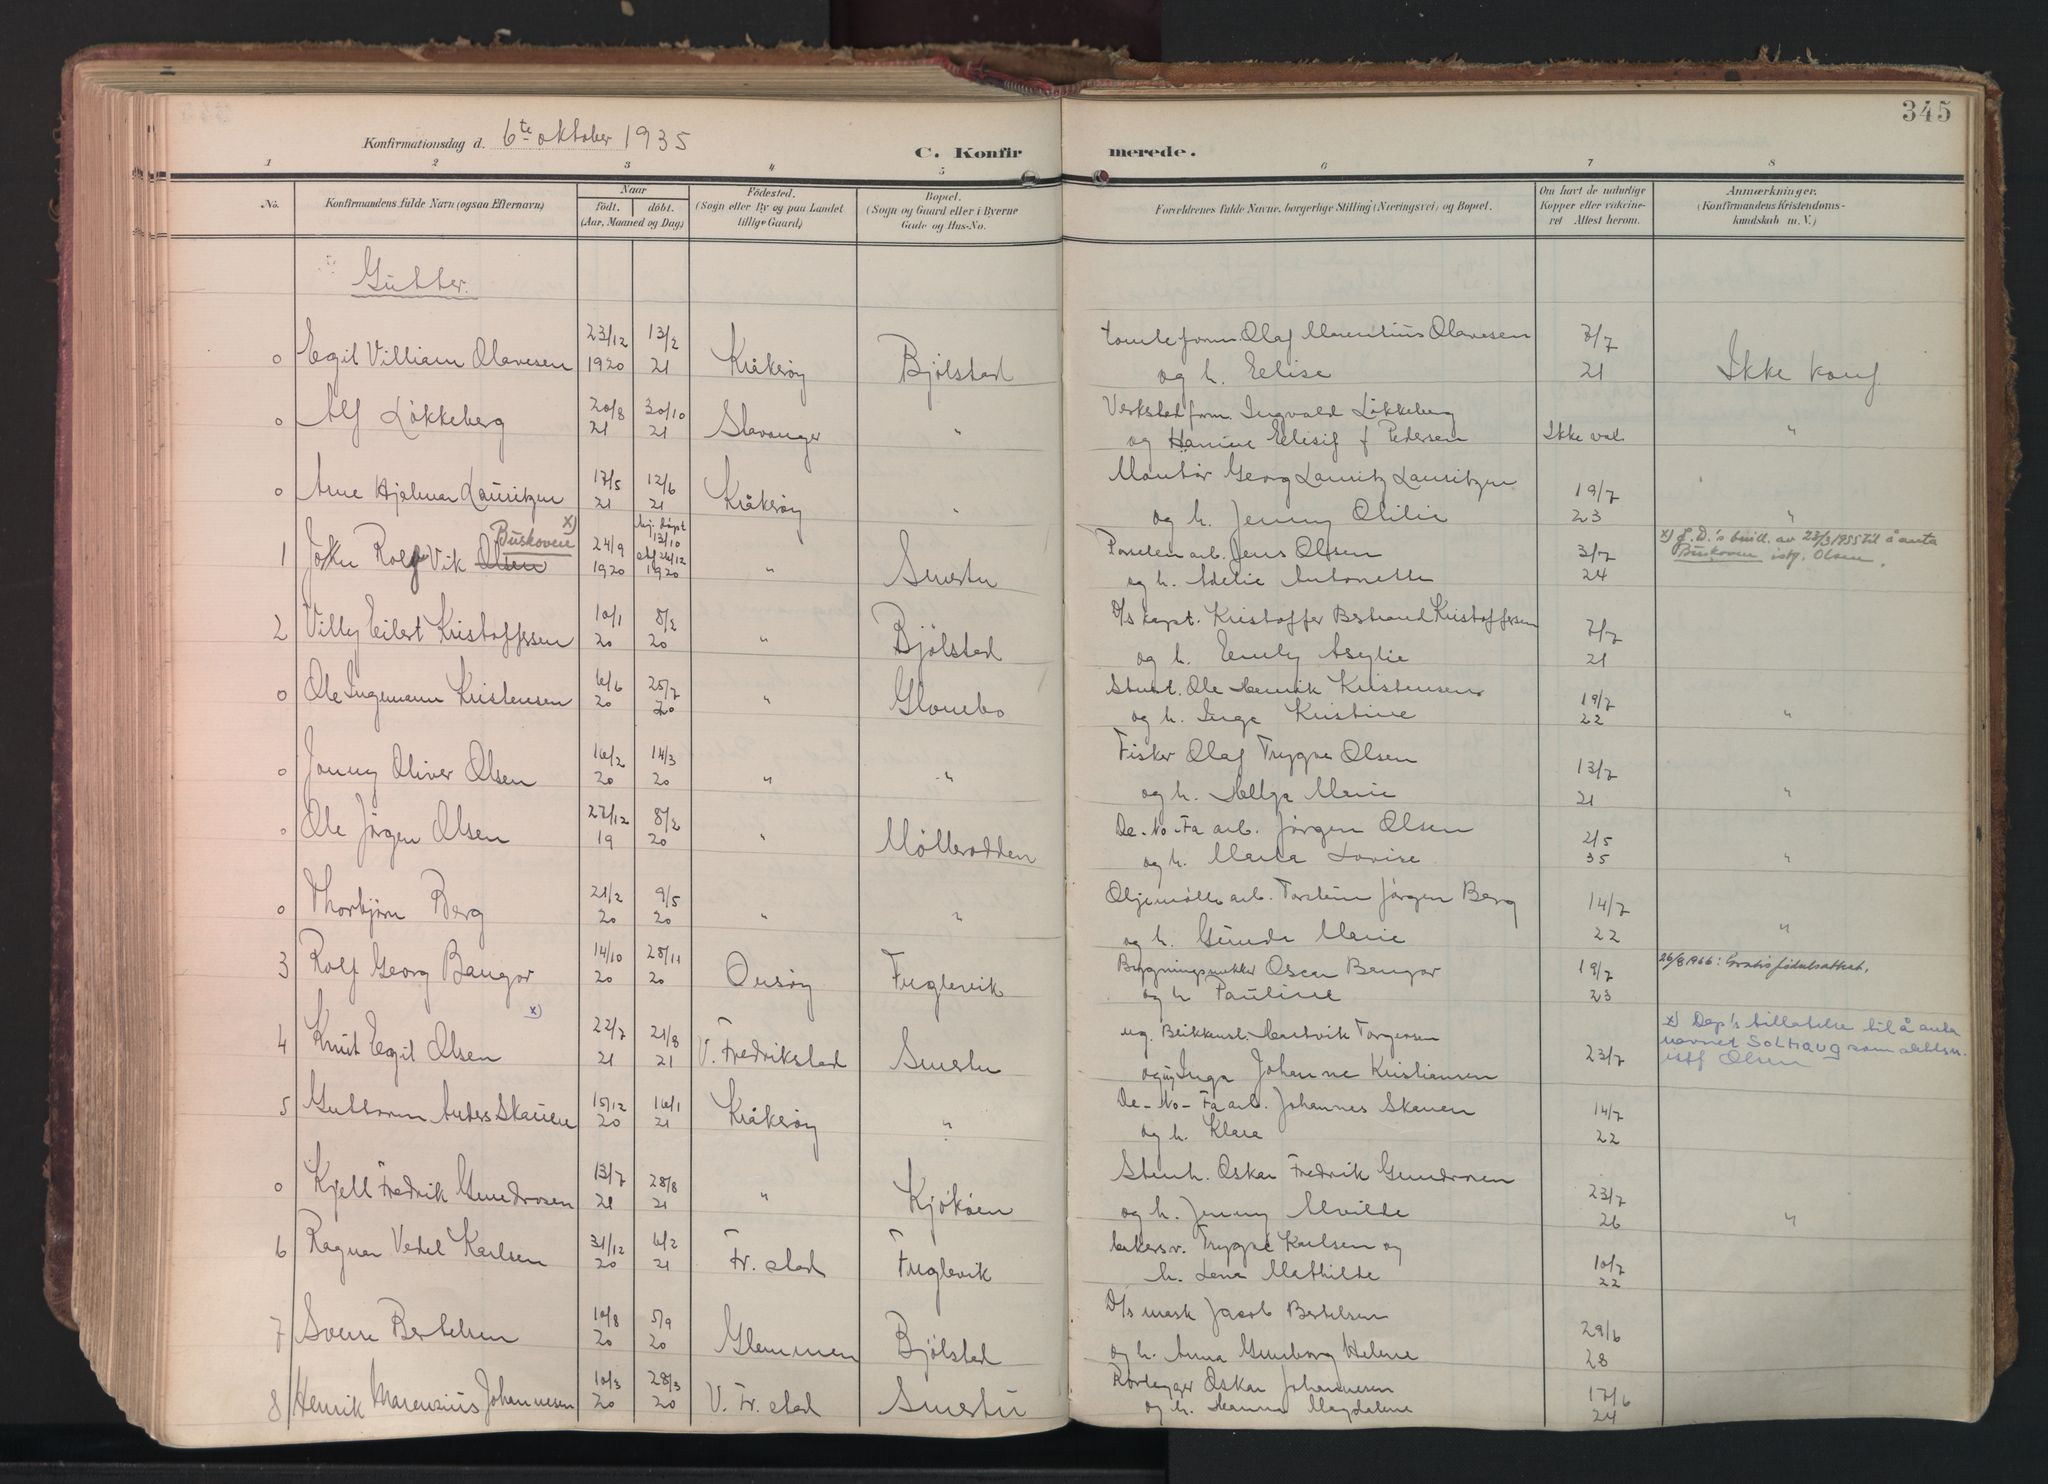 345
Konfirmationsdag d. 6te oktober 1935
C. Konfirmerede.
1 2 3 4 5 6 7 8
No.
Konfirmandens fulde Navn (ogsaa Efternavn).
Naar
født. døbt.
(Aar, Maaned og Dag.)
Födested.
(Sogn eller By og paa Landet tillige Gaard.)
Bopæl.
(Sogn og Gaard eller i Byerne Gade og Hus-No.
Forældrenes fulde Navne, borgerlige Stilling (Næringsvei) og Bopæl.
Om havt de naturlige Kopper eller vakcineret Attest herom.
Anmærkninger.
(Konfirmandens Kristendomskundskab m. V.)
Gutter.
0 Egil Villiam Olavesen 23/12 1920 13/2 21 Kråkerøy Bjølstad tomteform. Olaf Marentius Olavesen og h. Elise 7/7 21 Ikke konf.
0 Alf Løkkeberg 20/8 21 30/10 21 Stavanger " Verkstedform. Ingvald Løkkeberg og Hanine Elisif f Pedersen Ikke vak. "
0 Arne Hjalmar Lauritzen 17/5 21 12/6 21 Kråkerøy " Montør Georg Lauritz Lauritzen og h. Jenny Otilie 19/7 23 "
1 John Rolf Vik Olsen Buskoven x) 24/9 1920 hj. døpt 13/10 stf 26/12 1920 " Smertu arb. Jens Olsen og h. Adelie Antonette 3/7 24 x) J.D.'s bevill. av 23/3 1955 til å anta Buskoven istf. Olsen.
2 Villy Eilert Kristoffersen 10/1 20 8/2 20 " Bjølstad D/s kapt. Kristoffer Bertrand Kristoffersen og h. Emily Aseylie 7/7 21
0 Ole Ingemann Kristensen 6/6 20 25/7 20 " Glombo Stuert. Ole Henrik Kristensen og h. Inga Kristine 19/7 22 "
0 Jonny Oliver Olsen 16/2 20 14/3 20 " " Fisker Olaf Trygve Olsen og h. Helga Marie 13/7 21 "
0 Ole Jörgen Olsen 27/12 19 8/2 20 " Møllerodden De-No-Fa arb. Jörgen Olsen og h. Maria Lovise 2/5 35 "
0 Thorbjørn Berg 21/2 20 9/5 20 " " Oljemølle arb. Torstein Jörgen Berg og h. Gunda Marie 14/7 22 "
3 Rolf Georg Bangor 14/10 20 28/11 20 Onsøy Fuglevik Bygningssnekker Oscar Bangor og h Pauline 19/7 23 26/8 1966: Gratis fødselsattest.
4 Knut Egil Olsen x) 22/7 21 21/8 21 V. Fredrikstad Smertu ug. Blikkensl. Hartvik Torgersen og ug Inga Johanne Kristiansen 23/7 x) Dep's tillatelse til å anta navnet Solhaug som slektsn. istf Olsen
5 Guttorm Anders Skauen 15/12 20 16/1 21 Kråkerøy " De-No-Fa arb. Johannes Skauen og h. Klara 14/7 22
0 Kjell Fredrik Gundrosen 13/7 21 28/8 21 " Kjøkøen Stenh. Oskar Fredrik Gundrosen og h. Jenny Alvilde 23/7 26 "
6 Ragnar Vedel Karlsen 31/12 20 6/2 21 Fr. stad Fuglevik bakersv. Trygve Karlsen og h. Lena Mathilde 10/7 22
7 Sverre Bertelsen 10/8 20 5/9 20 Glemmen Bjølstad D/s mask Jacob Bertelsen og h. Anna Gunborg Helene 29/6 28
8 Henrik Marenzius Johannesen 10/3 20 28/3 20 V. Fr. stad Smertu Rørlegger Oskar Johannesen og h. Hanna Magdalene 17/6 24